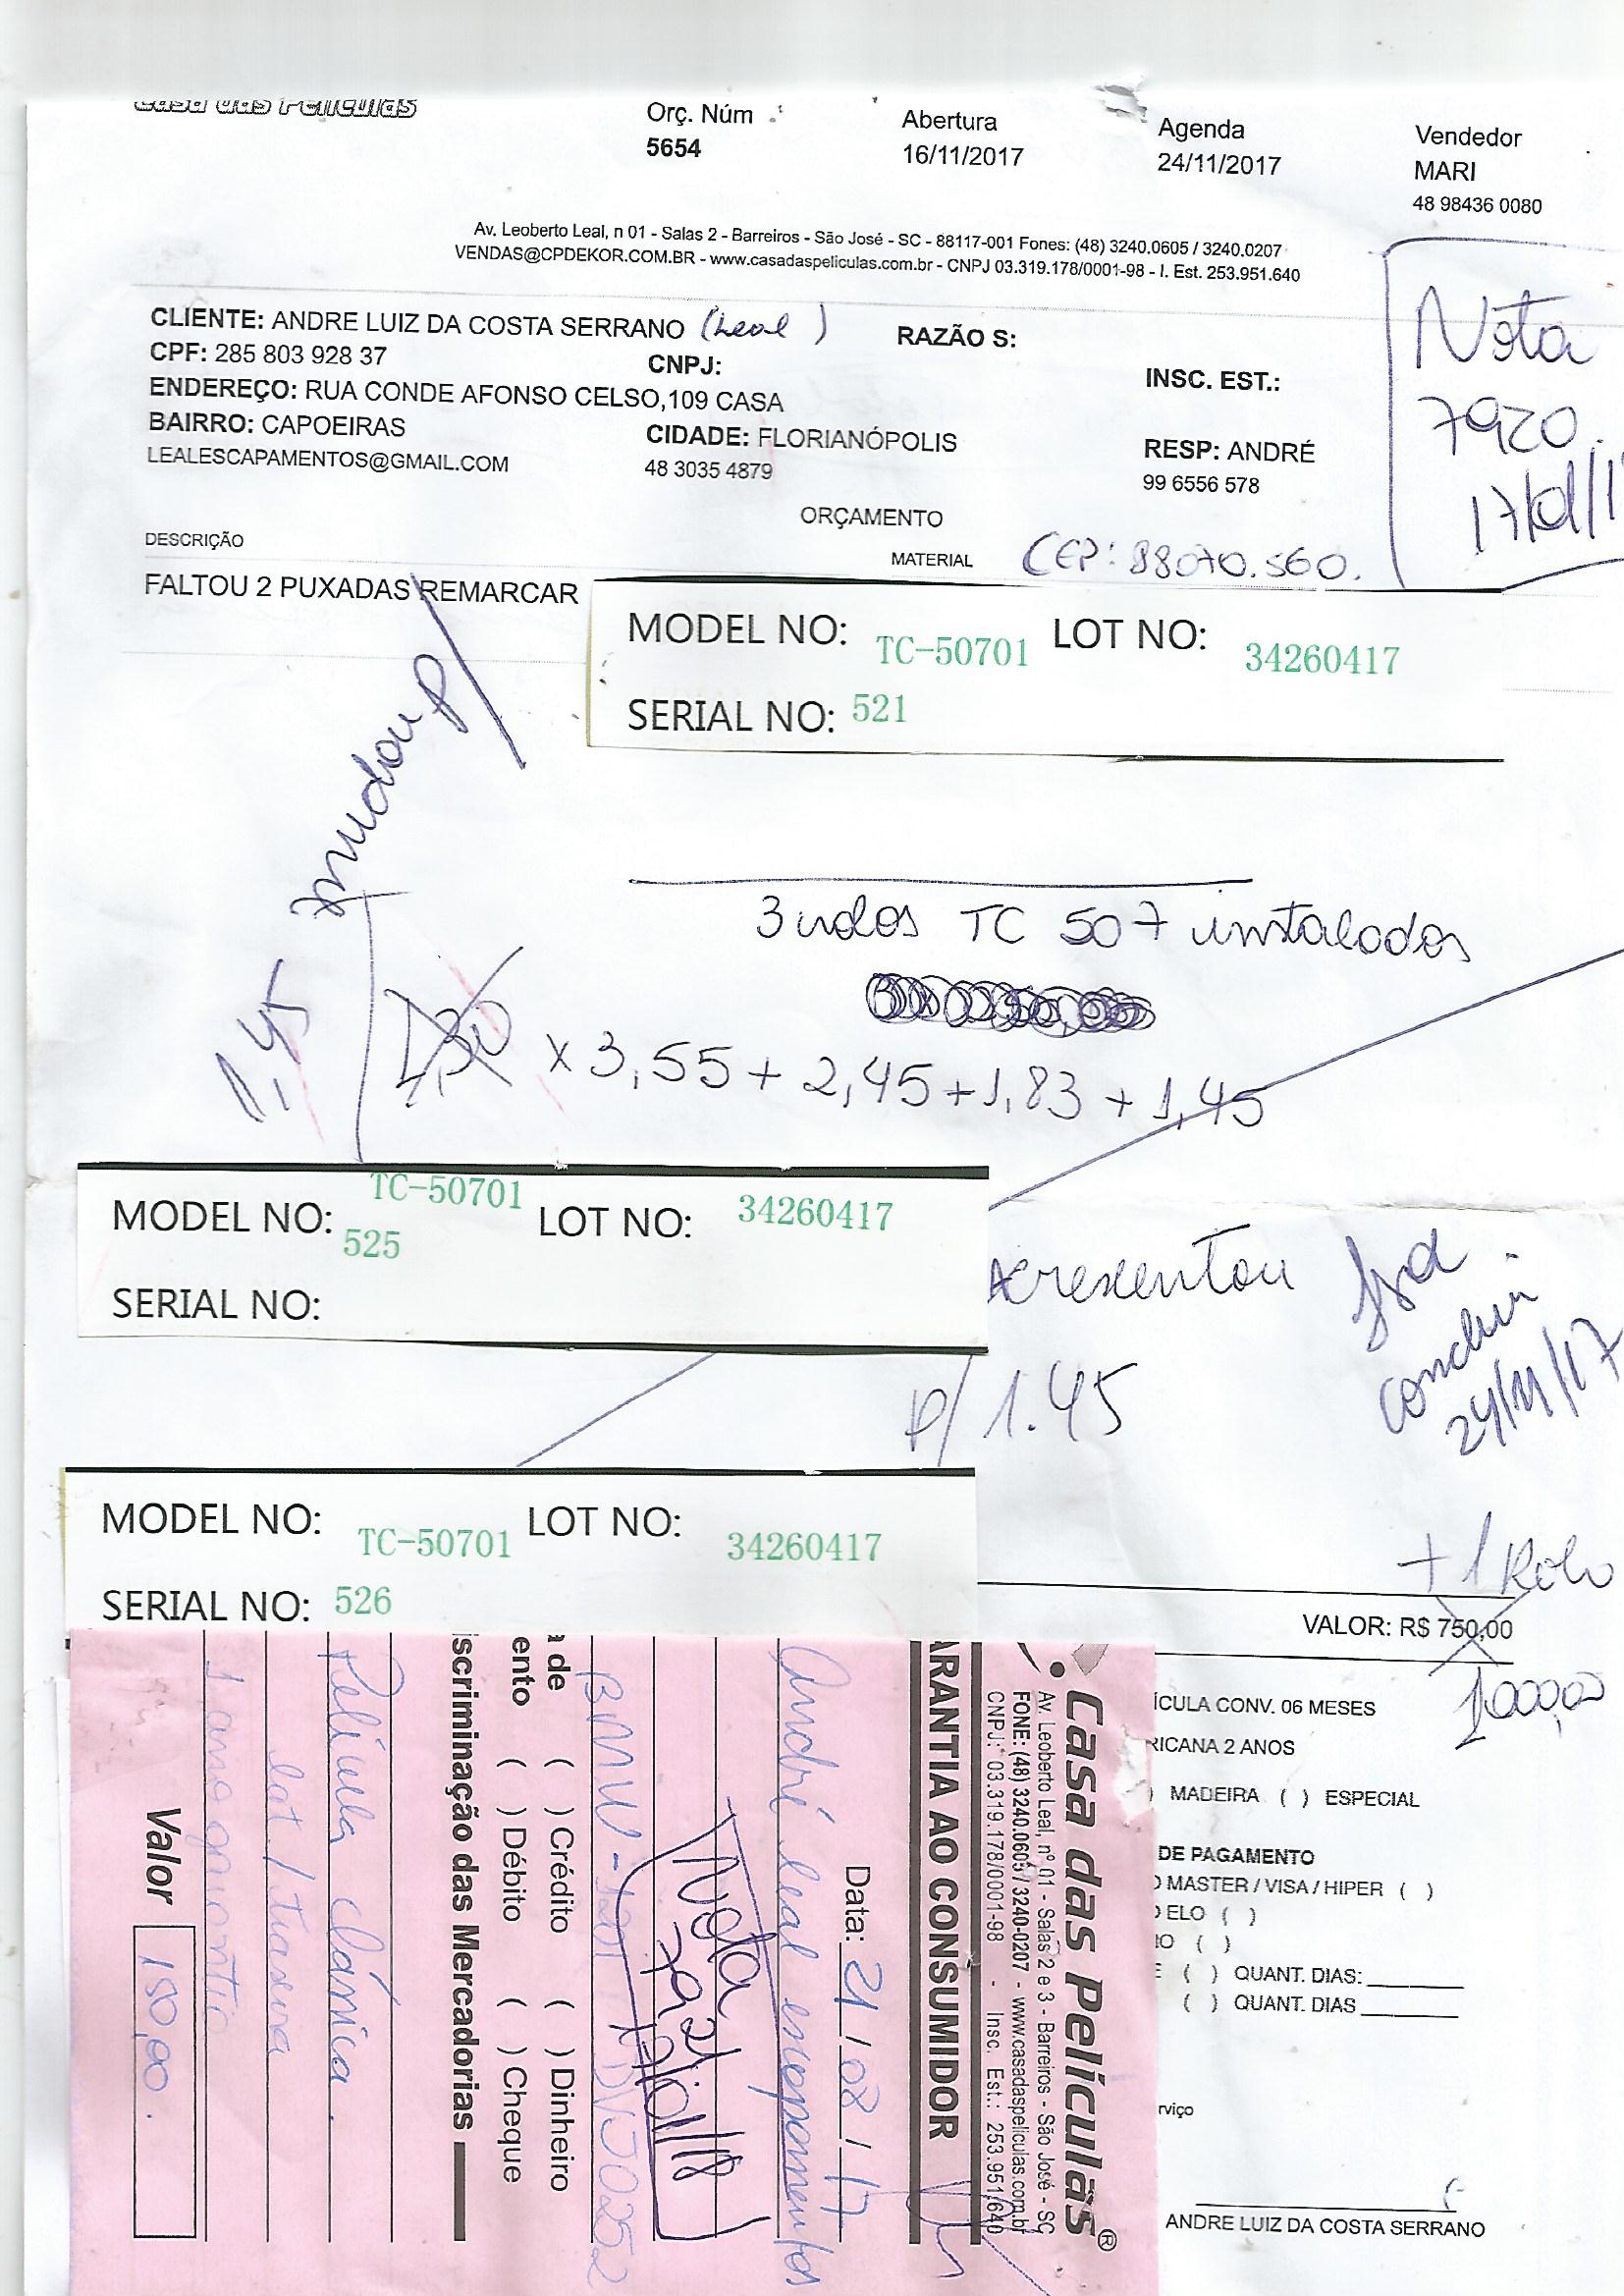 Casa das Películas
Orç. Núm
5654
Abertura
16/11/2017
Agenda
24/11/2017
Vendedor
MARI
48 98436 0080
Av. Leoberto Leal, n 01 - Salas 2 - Barreiros - São José - SC - 88117-001 Fones: (48) 3240.0605 / 3240.0207
VENDAS@CPDEKOR.COM.BR - www.casadaspeliculas.com.br - CNPJ 03.319.178/0001-98 - I. Est. 253.951.640
CLIENTE: ANDRE LUIZ DA COSTA SERRANO (Leal) RAZÃO S:
CPF: 285 803 928 37 CNPJ: INSC. EST.:
ENDEREÇO: RUA CONDE AFONSO CELSO,109 CASA
BAIRRO: CAPOEIRAS CIDADE: FLORIANÓPOLIS RESP: ANDRÉ
LEALESCAPAMENTOS@GMAIL.COM 48 3035 4879 99 6556 578
Nota
7920.
ORÇAMENTO
DESCRIÇÃO MATERIAL CEP: 88070.560.
FALTOU 2 PUXADAS REMARCAR
MODEL NO: TC-50701 LOT NO: 34260417
SERIAL NO: 521
mudou p/
3 rolos TC 507 instalados
1,45
1,30 x 3,55 + 2,45 + 1,83 + 1,45
MODEL NO: TC-50701 LOT NO: 34260417
525
SERIAL NO:
Acrescentou
p/ 1.45
conclui
24/11/17
MODEL NO: TC-50701 LOT NO: 34260417
SERIAL NO: 526
+ 1 Rolo
VALOR: R$ 750,00
1,000,00
ÍCULA CONV. 06 MESES
RICANA 2 ANOS
) MADEIRA ( ) ESPECIAL
DE PAGAMENTO
O MASTER / VISA / HIPER ( )
O ELO ( )
RO ( )
E ( ) QUANT. DIAS:
( ) QUANT. DIAS
rviço
ANDRE LUIZ DA COSTA SERRANO
Casa das Películas®
Av. Leoberto Leal, nº 01 - Salas 2 e 3 - Barreiros - São José - SC
FONE: (48) 3240.0605 / 3240-0207 - www.casadaspeliculas.com.br
CNPJ: 03.319.178/0001-98 - Insc. Est.: 253.951.640
ARANTIA AO CONSUMIDOR
Data: 21/08/17
André Leal escapamentos
Nota
BMW - 120I
a de ( ) Crédito ( ) Dinheiro
ento ( ) Débito ( ) Cheque
scriminação das Mercadorias
Película clássica
lat / traseira
1 ano garantia
Valor 150,00.